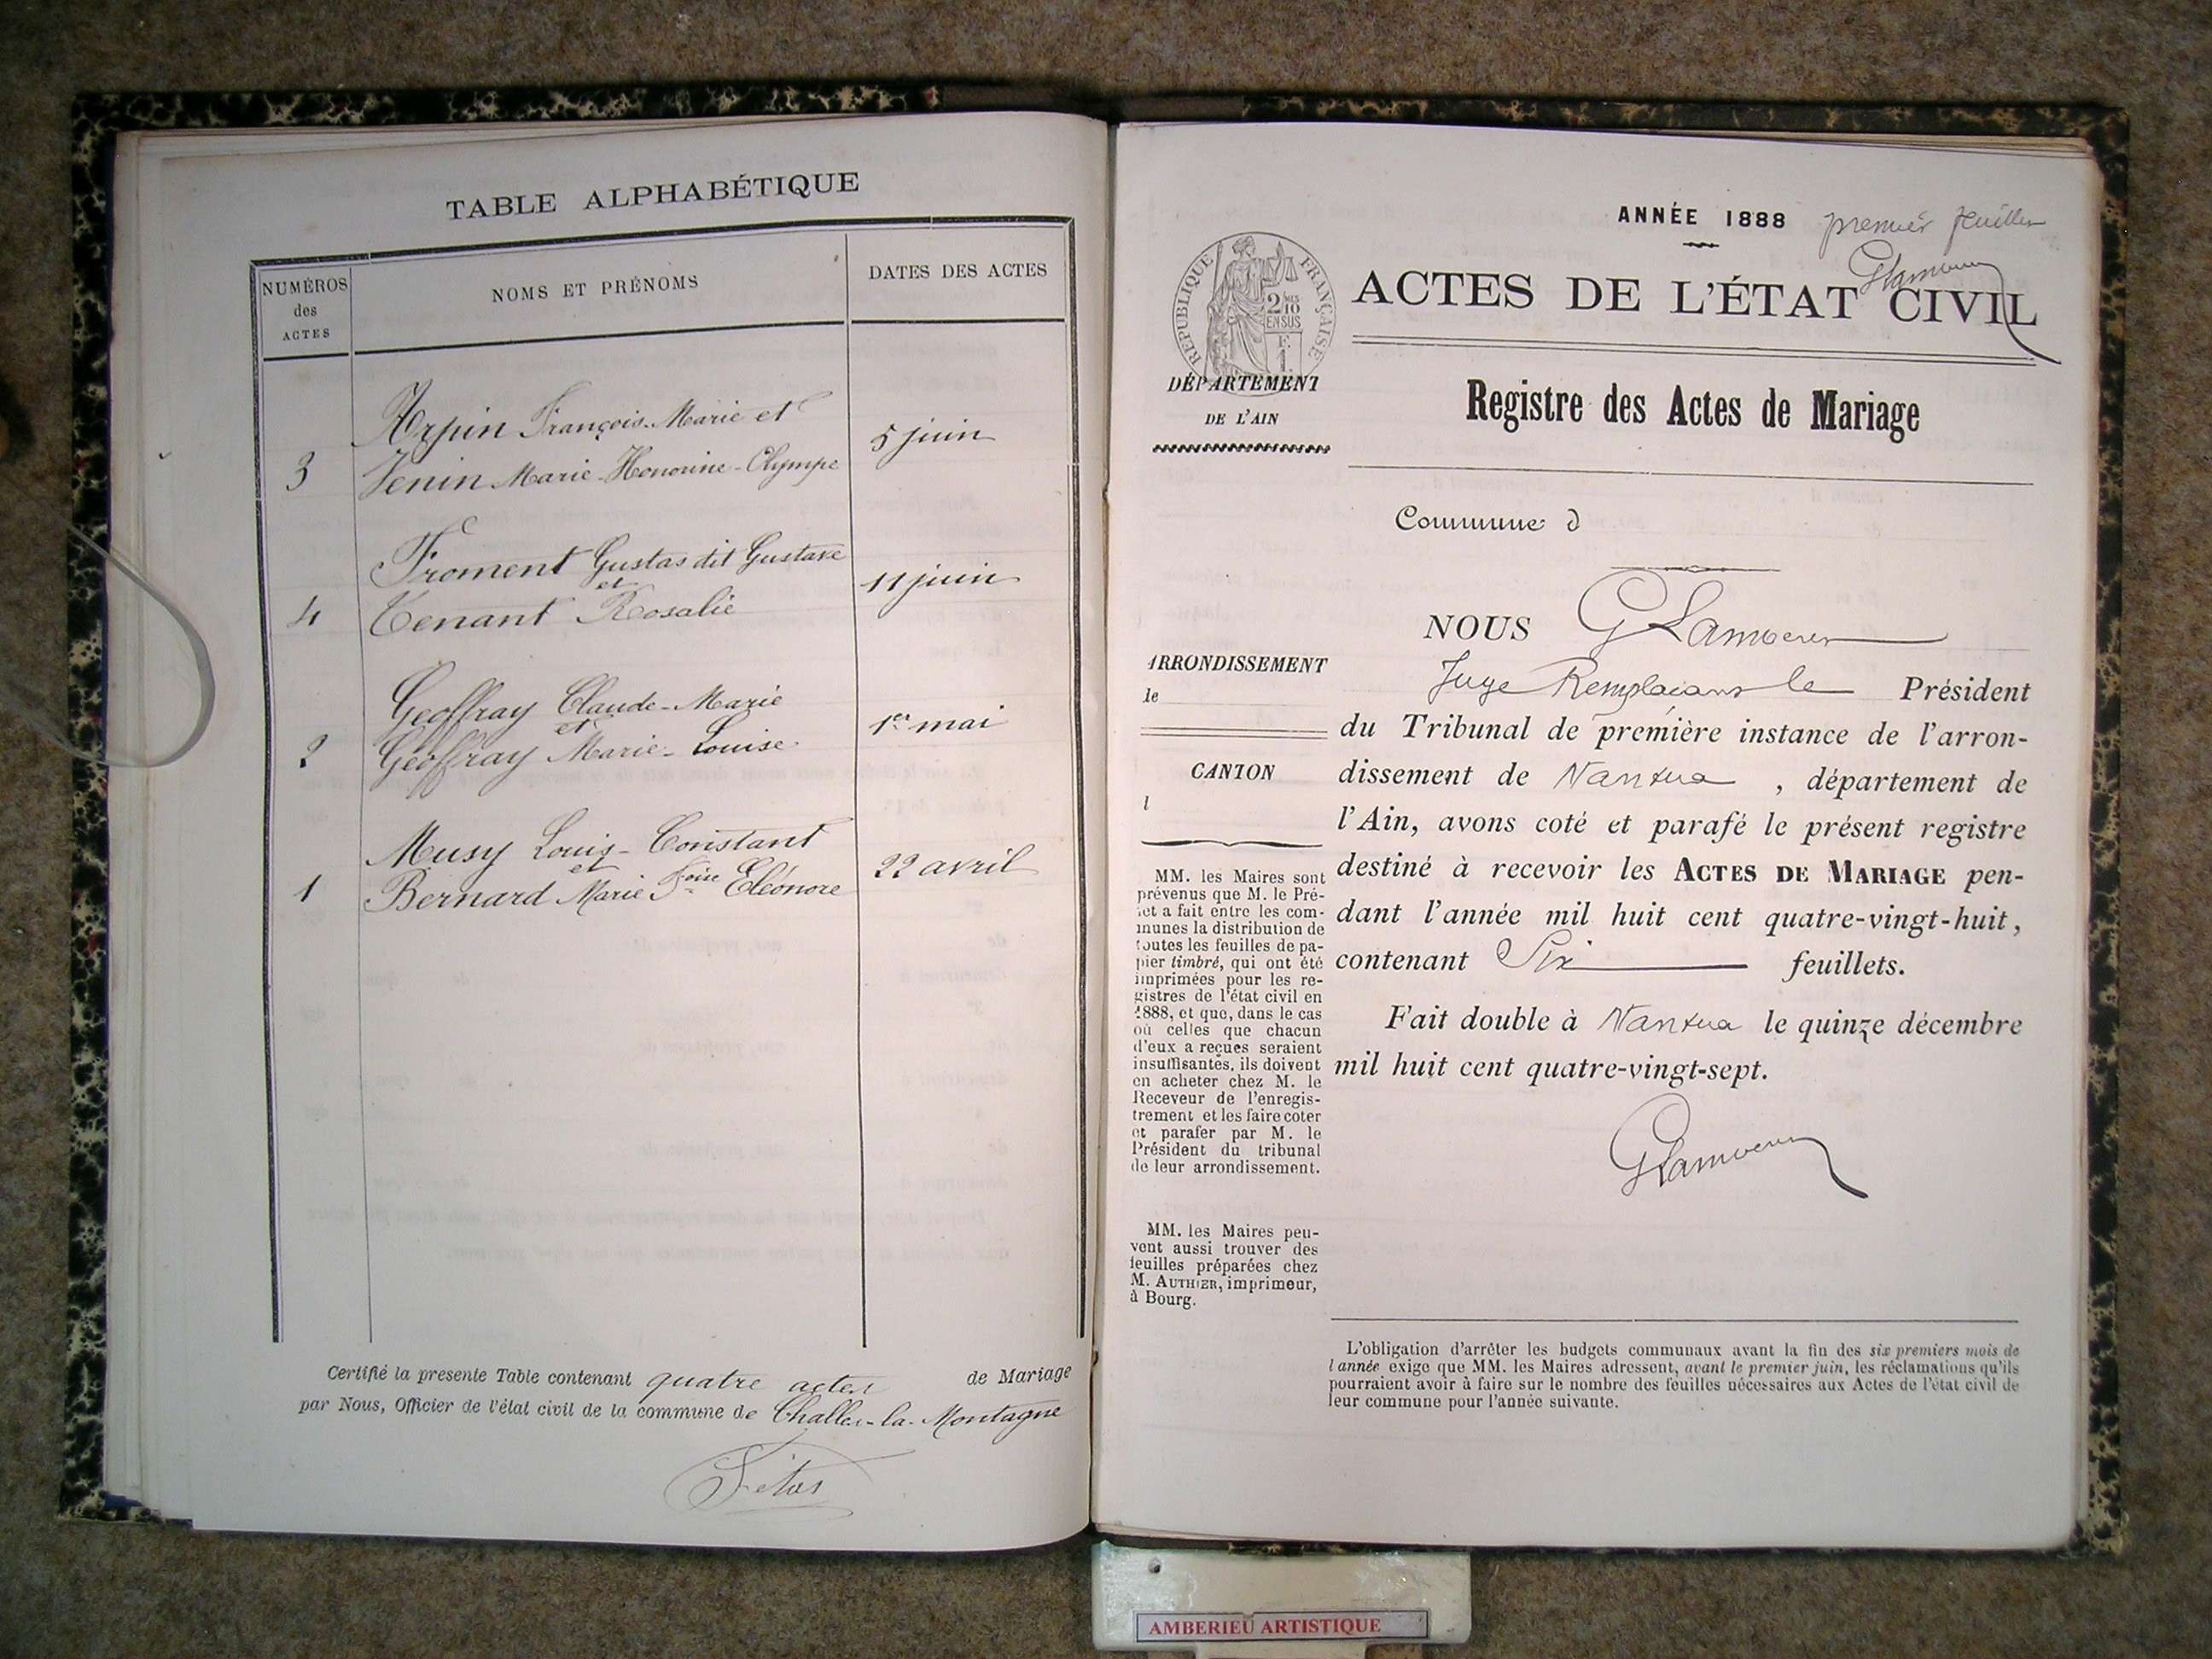 TABLE ALPHABÉTIQUE
NUMÉROS
des
ACTES
NOMS ET PRÉNOMS
DATES DES ACTES
Arpin François-Marie et
3 Venin Marie-Honorine-Olympe
5 juin
Froment Gustas dit Gustave
et
4 Tenant Rosalie
11 juin
Geoffray Claude-Marie
et
2 Geoffray Marie-Louise
1er mai
Musy Louis-Constant
et
1 Bernard Marie Foise Eléonore
22 avril
Certifié la presente Table contenant quatre actes de Mariage
par Nous, Officier de l'état civil de la commune de Challes-la-Montagne
ANNÉE 1888 premier feuillet
RÉPUBLIQUE FRANÇAISE
2 MES
10
EN SUS
F.
1.
ACTES DE L'ÉTAT CIVIL
DÉPARTEMENT
DE L'AIN
Registre des Actes de Mariage
Commune d
NOUS
Juge Remplaçant le Président
du Tribunal de première instance de l'arron-
dissement de Nantua , département de
l'Ain, avons coté et parafé le présent registre
destiné à recevoir les ACTES DE MARIAGE pen-
dant l'année mil huit cent quatre-vingt-huit,
contenant Six feuillets.
Fait double à Nantua le quinze décembre
mil huit cent quatre-vingt-sept.
ARRONDISSEMENT
le
CANTON
l
MM. les Maires sont
prévenus que M. le Pré-
fet a fait entre les com-
munes la distribution de
toutes les feuilles de pa-
pier timbré, qui ont été
imprimées pour les re-
gistres de l'état civil en
1888, et que, dans le cas
où celles que chacun
d'eux a reçues seraient
insuffisantes, ils doivent
en acheter chez M. le
Receveur de l'enregis-
trement et les faire coter
et parafer par M. le
Président du tribunal
de leur arrondissement.
MM. les Maires peu-
vent aussi trouver des
feuilles préparées chez
M. AUTHIER, imprimeur,
à Bourg.
L'obligation d'arrêter les budgets communaux avant la fin des six premiers mois de
l'année exige que MM. les Maires adressent, avant le premier juin, les réclamations qu'ils
pourraient avoir à faire sur le nombre des feuilles nécessaires aux Actes de l'état civil de
leur commune pour l'année suivante.
AMBERIEU ARTISTIQUE